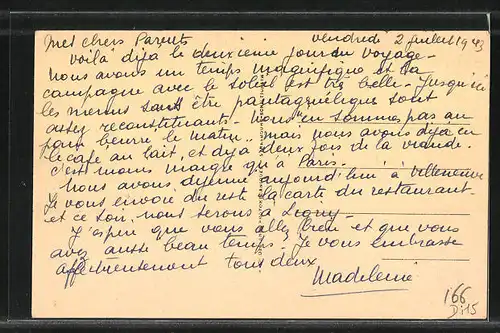 Mes chers Parents Vendredi 2 juillet 1943
Voilà déjà le deuxième jour du voyage -
Nous avons un temps magnifique et la
campagne avec le soleil est très belle - Jusqu'ici
les menus sans être pantagruéliques sont
assez reconstituants - Nous en sommes pas au
pain beurre le matin.. mais nous avons déjà eu
le café au lait, et déjà deux fois de la viande.
c'est moins maigre qu'à Paris -
Nous avons déjeuné aujourd'hui à Villeneuve
Je vous envoie du reste la carte du restaurant -
et ce soir, nous serons à
J'espère que vous allez bien et que vous
avez aussi beau temps - Je vous embrasse
affectueusement tous deux
Madeleine
166
D:15